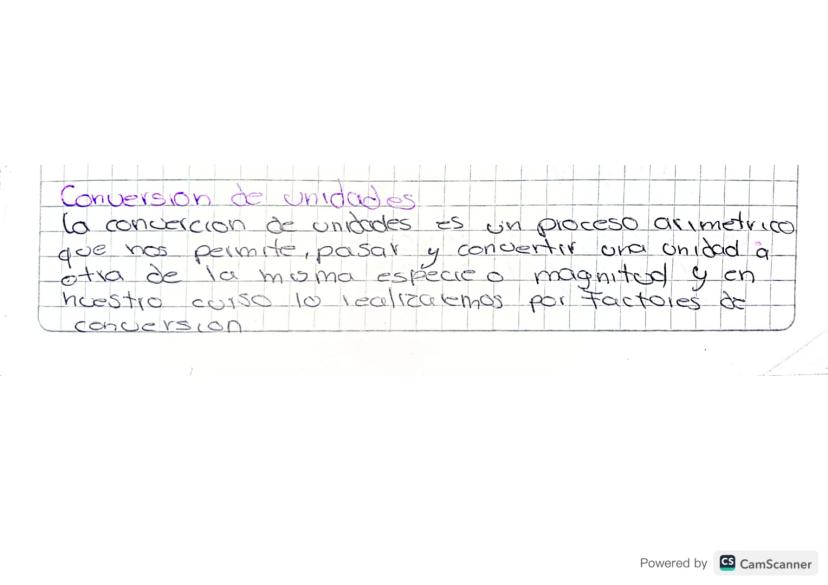 Conversion de unidades
la convercion de unidades es un proceso arimetrico
que nos permite, pasar y convertir una unidad a
otra de la misma especie o magnitud y en
nuestro curso lo realizaremos por factores de
conversion
Powered by CS CamScanner